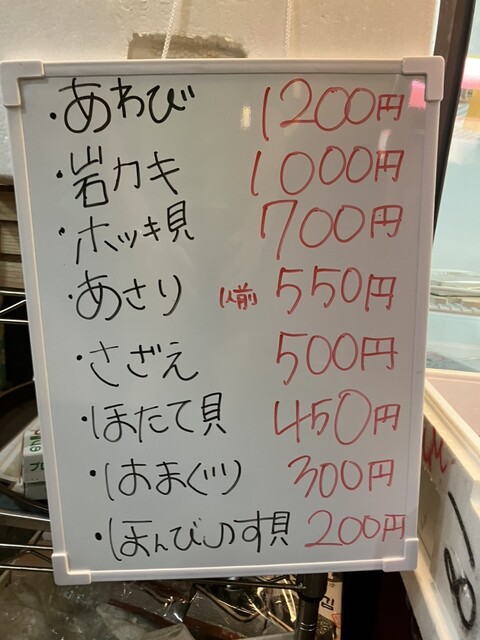 ・あわび 1200円
・岩カキ 1000円
・ホッキ貝 700円
・あさり 1人前 550円
・さざえ 500円
・ほたて貝 450円
・はまぐり 300円
・ほんびのす貝 200円